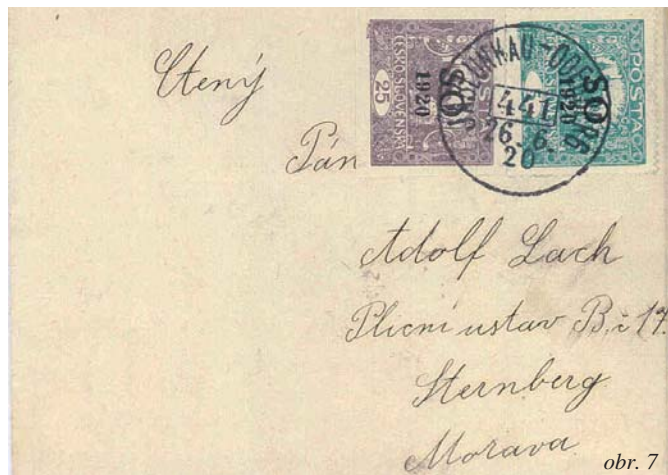 ČESKO-SLOVENSKÁ
25
SO
1920
POŠTA
SO
1920
JABLUNKAU-ODERBERG
441
26.6.
20
Ctený
Pán
Adolf Lach
Plicní ustav B. č 17.
Sternberg
Morava
obr. 7